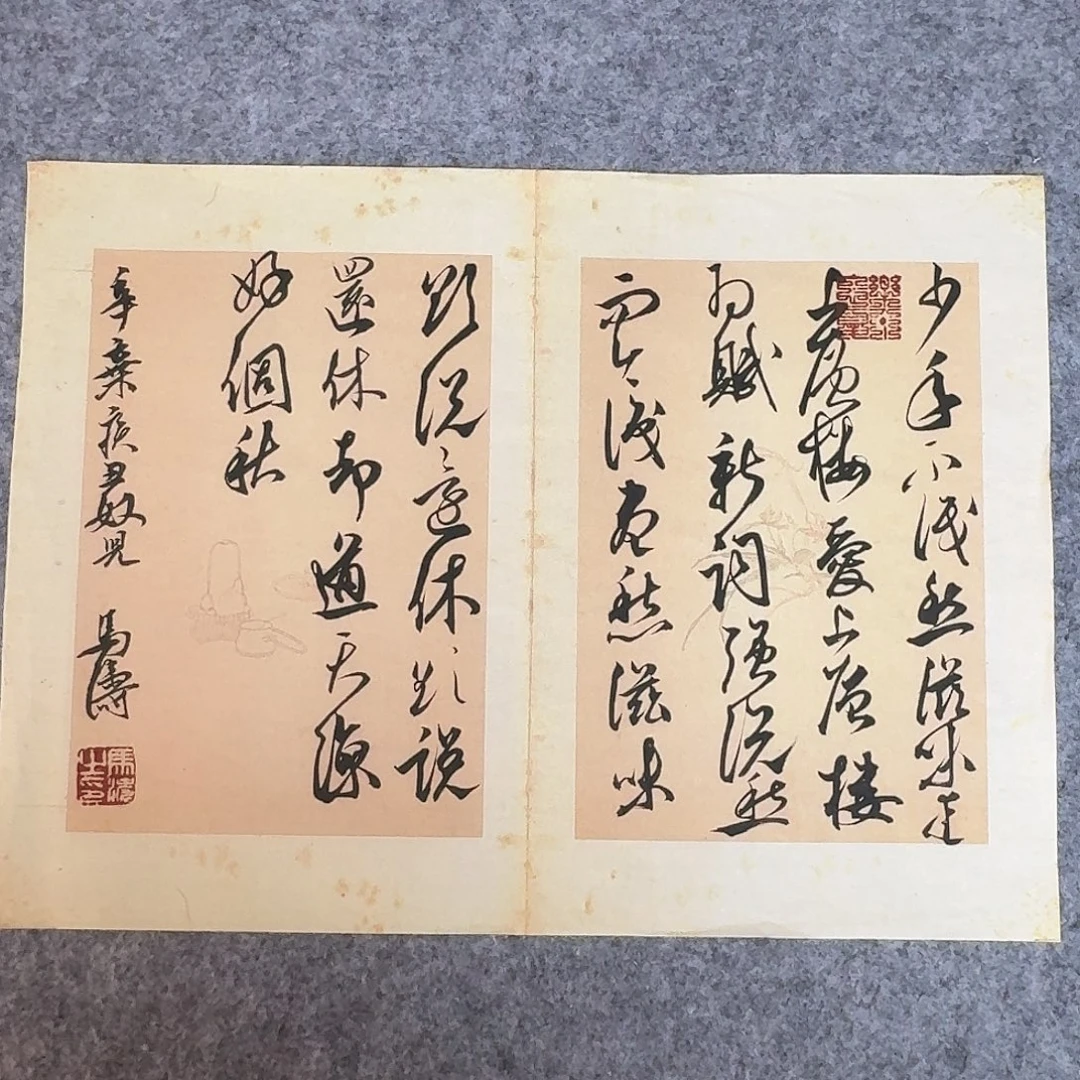 少年不識愁滋味愛
上層樓愛上層樓
為賦新詞強說愁
而今識盡愁滋味
欲說還休欲說
還休却道天涼
好個秋
辛棄疾丑奴兒 馬濤
馬濤之印